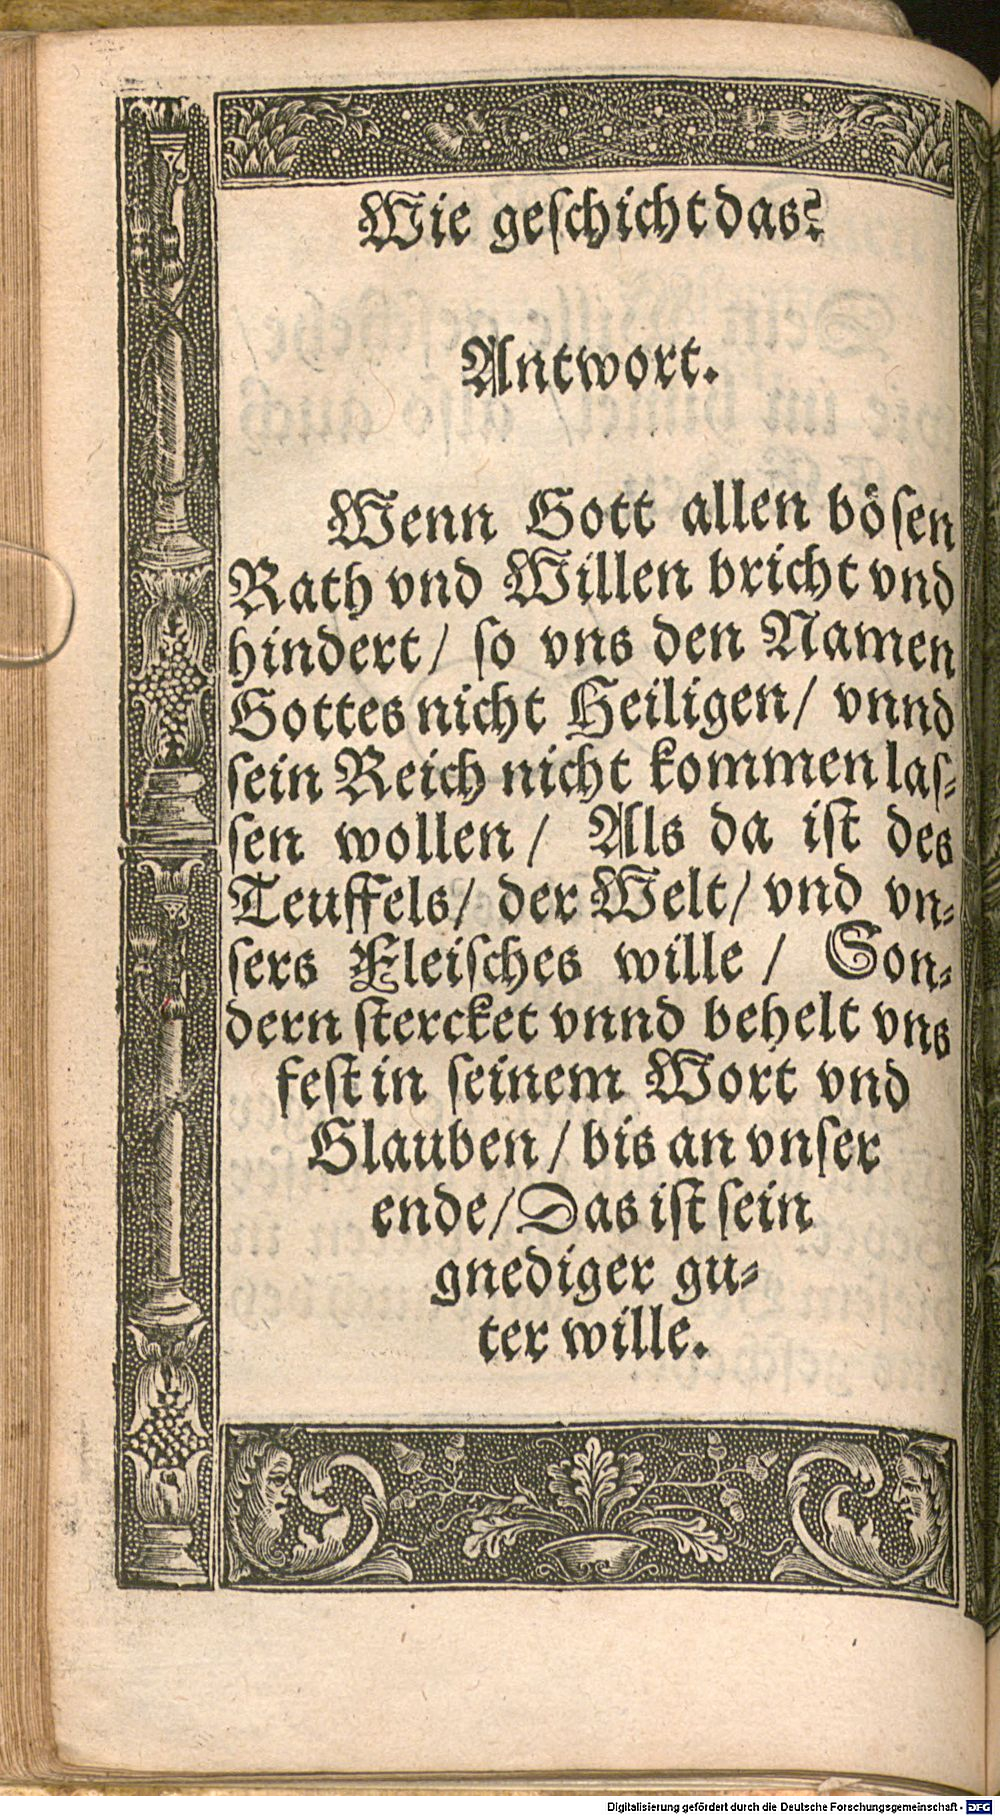 Wie geſchicht das?
Antwort.
Wenn Gott allen boͤſen
Rath vnd Willen bricht vnd
hindert/ ſo vns den Namen
Gottes nicht Heiligen/ vnnd
ſein Reich nicht kommen laſ⸗
ſen wollen/ Als da iſt des
Teuffels/ der Welt/ vnd vn⸗
ſers Fleiſches wille/ Son⸗
dern ſtercket vnnd behelt vns
feſt in ſeinem Wort vnd
Glauben/ bis an vnſer
ende/ Das iſt ſein
gnediger gu⸗
ter wille.
Digitalisierung gefördert durch die Deutsche Forschungsgemeinschaft - DFG